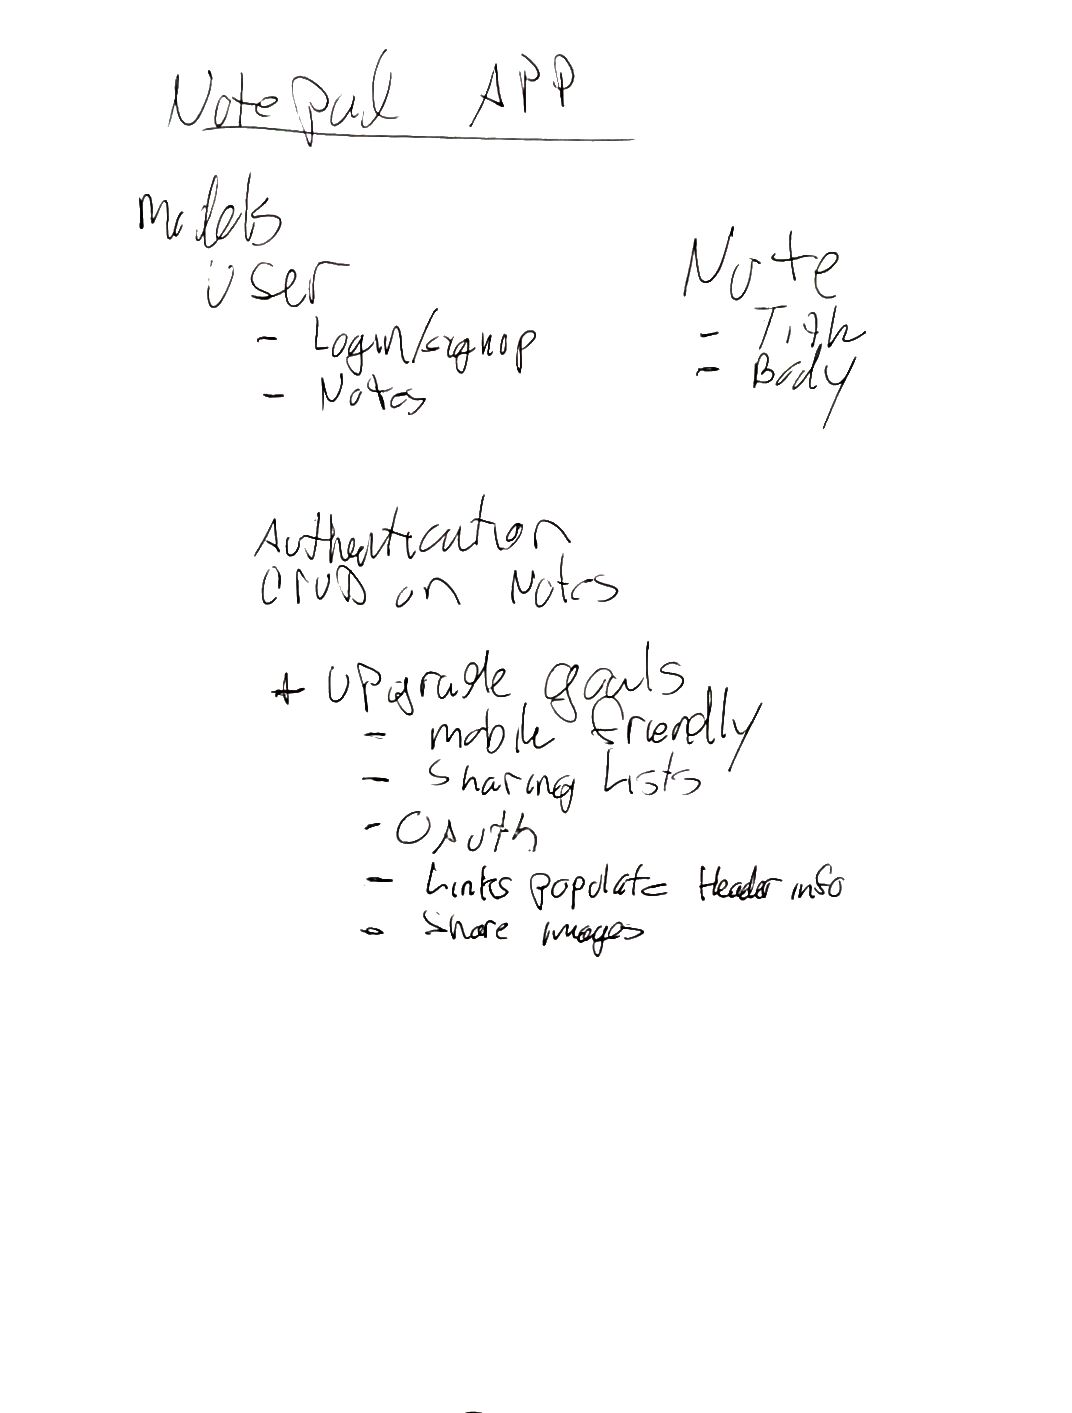 Notepad APP
Models
User
- Login/signup
- Notes
Note
- Title
- Body
Authentication
CRUD on Notes
+ Upgrade goals
- mobile friendly
- Sharing Lists
- OAuth
- Links populate Header info
- Share images